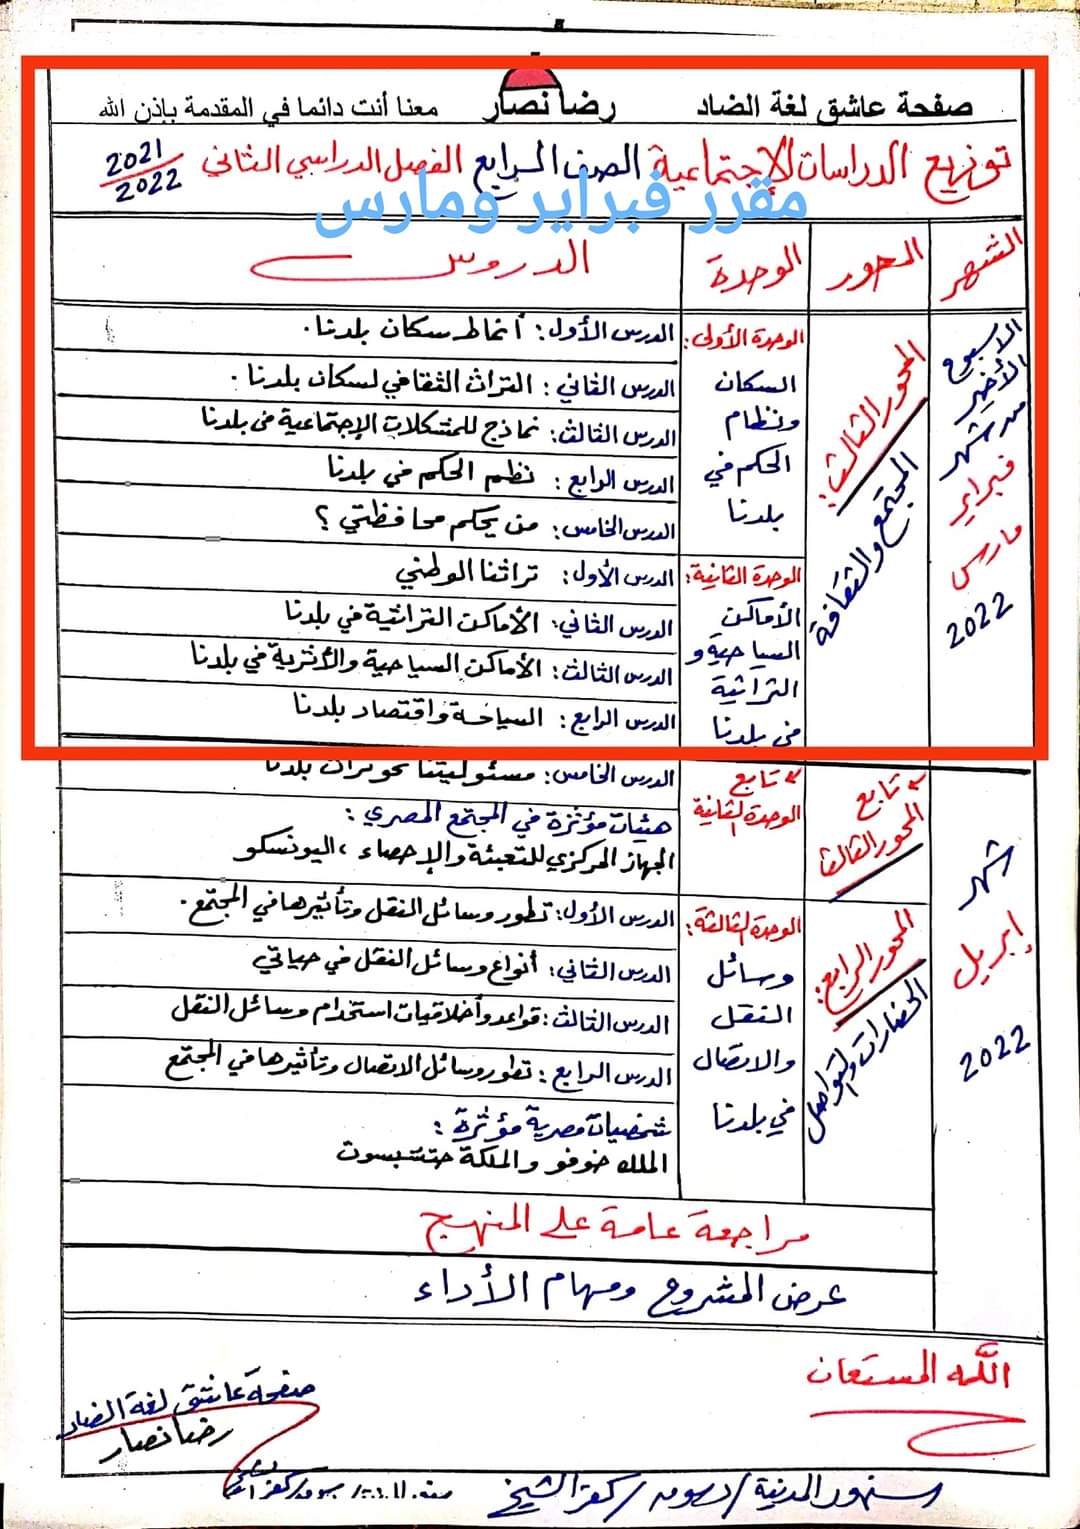 صفحة عاشق لغة الضاد رضا نصار معنا أنت دائما في المقدمة بإذن الله
توزيع الدراسات الإجتماعية الصف الرابع الفصل الدراسي الثاني 2021/2022
مقرر فبراير ومارس
الشهر المحور الوحدة الدروس
الاسبوع الأخير من شهر فبراير مارس 2022
المحور الثالث: المجتمع والثقافة
الوحدة الأولى: السكان ونظام الحكم في بلدنا
الدرس الأول: أنماط سكان بلدنا.
الدرس الثاني: التراث الثقافي لسكان بلدنا.
الدرس الثالث: نماذج للمشكلات الإجتماعية في بلدنا
الدرس الرابع: نظم الحكم في بلدنا
الدرس الخامس: من يحكم محافظتي؟
الوحدة الثانية: الأماكن السياحية والتراثية في بلدنا
الدرس الأول: تراثنا الوطني
الدرس الثاني: الأماكن التراثية في بلدنا
الدرس الثالث: الأماكن السياحية والأثرية في بلدنا
الدرس الرابع: السياحة واقتصاد بلدنا
شهر إبريل 2022
تابع المحور الثالث
تابع الوحدة الثانية
الدرس الخامس: مسئوليتنا نحو تراث بلدنا
هيئات مؤثرة في المجتمع المصري:
الجهاز المركزي للتعبئة والإحصاء، اليونسكو
المحور الرابع: الحضارات والتواصل
الوحدة الثالثة: وسائل النقل والاتصال في بلدنا
الدرس الأول: تطور وسائل النقل وتأثيرها في المجتمع.
الدرس الثاني: أنواع وسائل النقل في حياتي
الدرس الثالث: قواعد وأخلاقيات استخدام وسائل النقل
الدرس الرابع: تطور وسائل الاتصال وتأثيرها في المجتمع
شخصيات مصرية مؤثرة:
الملك خوفو والملكة حتشبسوت
مراجعة عامة على المنهج
عرض المشروع ومهام الأداء
الله المستعان
صفحة عاشق لغة الضاد
رضا نصار
سنهور المدينة/دسوق/كفر الشيخ